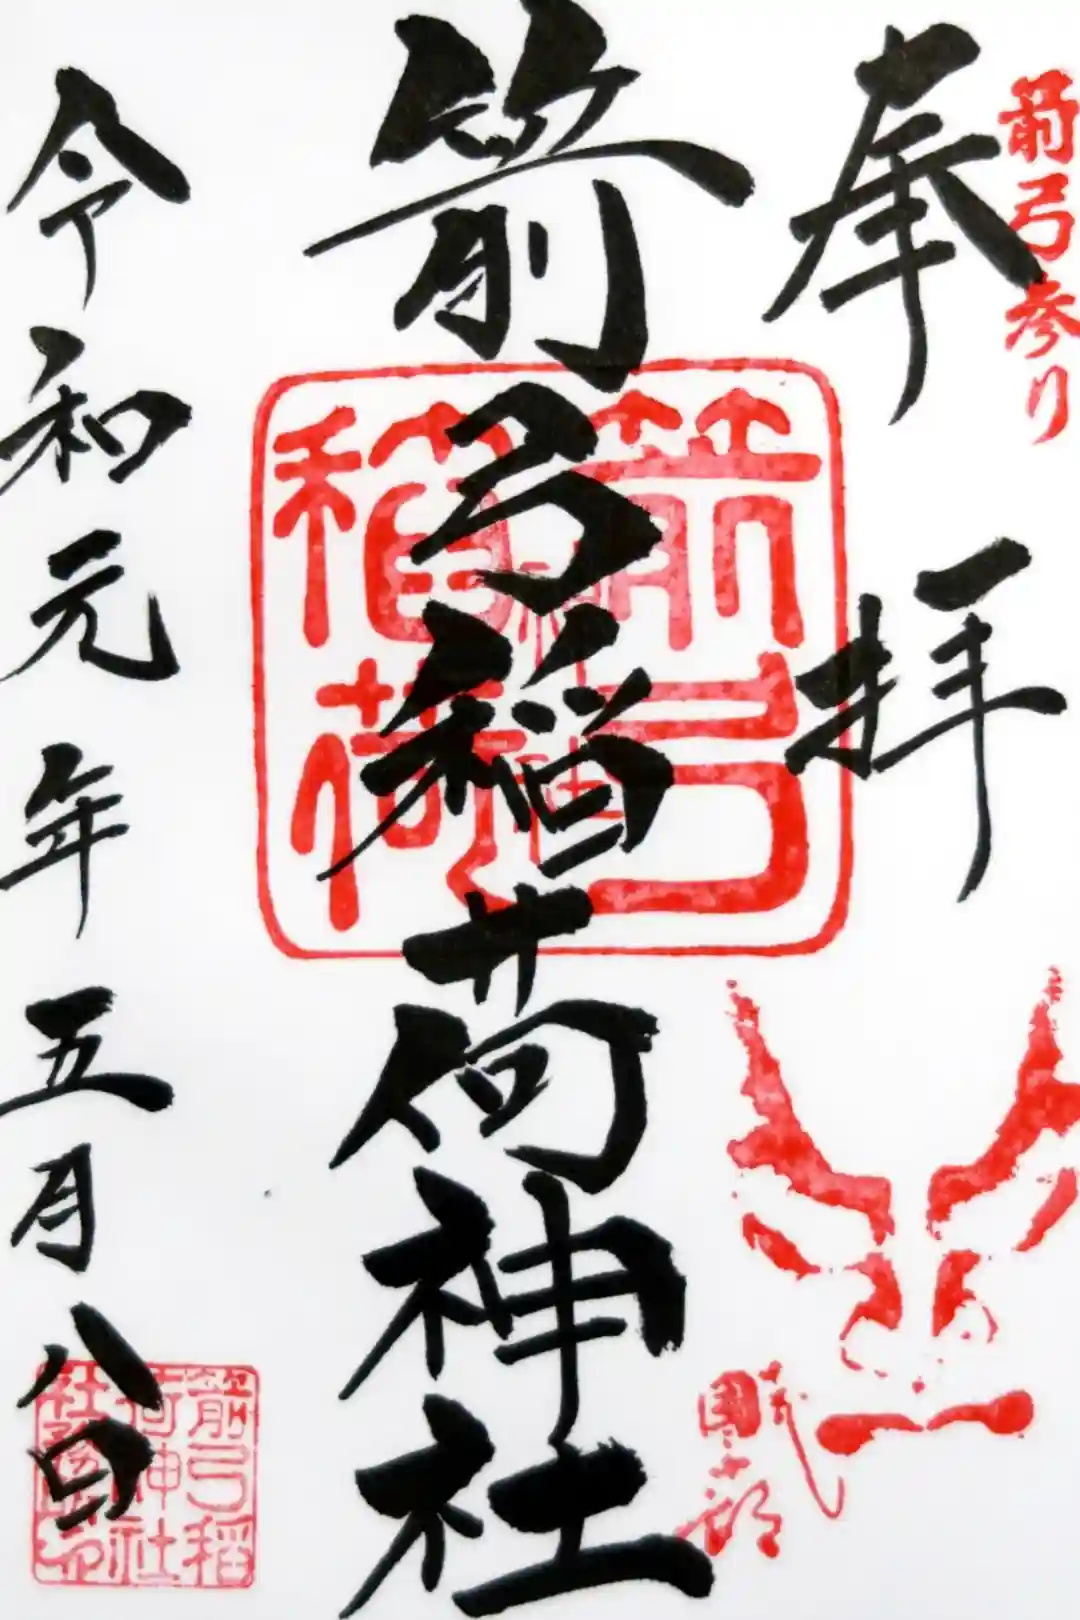 箭弓参り
奉拝
箭弓稲荷神社
令和元年五月八日
箭弓稲荷神社
箭弓稲
荷神社